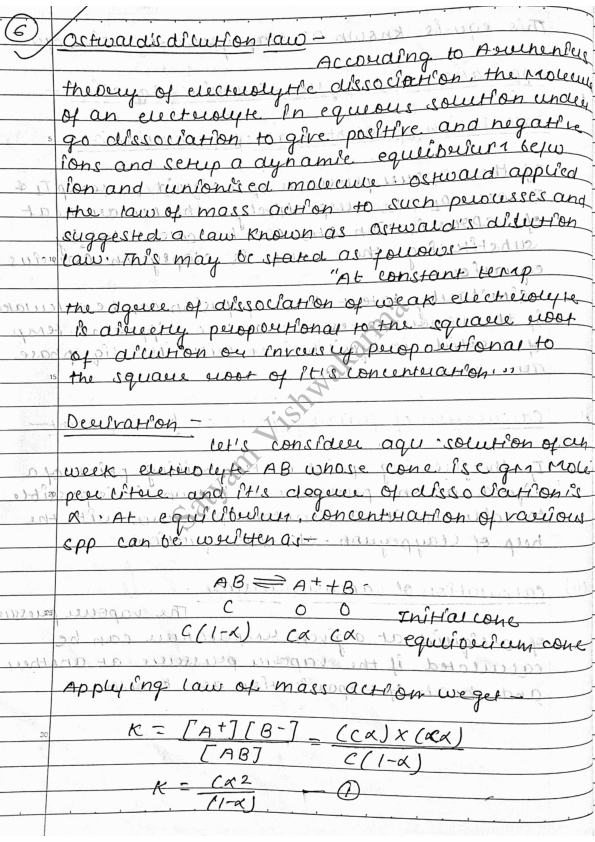 6
Ostwald's dilution law -
According to Arrhenius
theory of electrolytic dissociation the Molecule
of an electrolyte in equeous solution under
go dissociation to give positive and negative
ions and setup a dynamic equilibrium betw
ion and unionised molecule. Ostwald applied
the law of mass action to such processes and
suggested a law known as Ostwald's dilution
law. This may be stated as follows -
"At constant temp
the dgree of dissociation of weak electrolyte
is directly proportional to the square root
of dilution or inversly proportional to
the square root of it's concentration."
Derivation -
let's consider aqu. solution of an
week eletrolyte AB whose conc is c gm Mole
per litre and it's degree of dissociation is
α. At equilibrium, concentration of various
spp can be written as -
AB ⇌ A+ + B-
C 0 0 Initial conc
C(1-α) Cα Cα equilibrium conc
Applying law of mass action we get -
K = [A+][B-] / [AB] = (Cα) × (Cα) / C(1-α)
K = Cα2 / (1-α) — 1
Satyam Vishwakarma